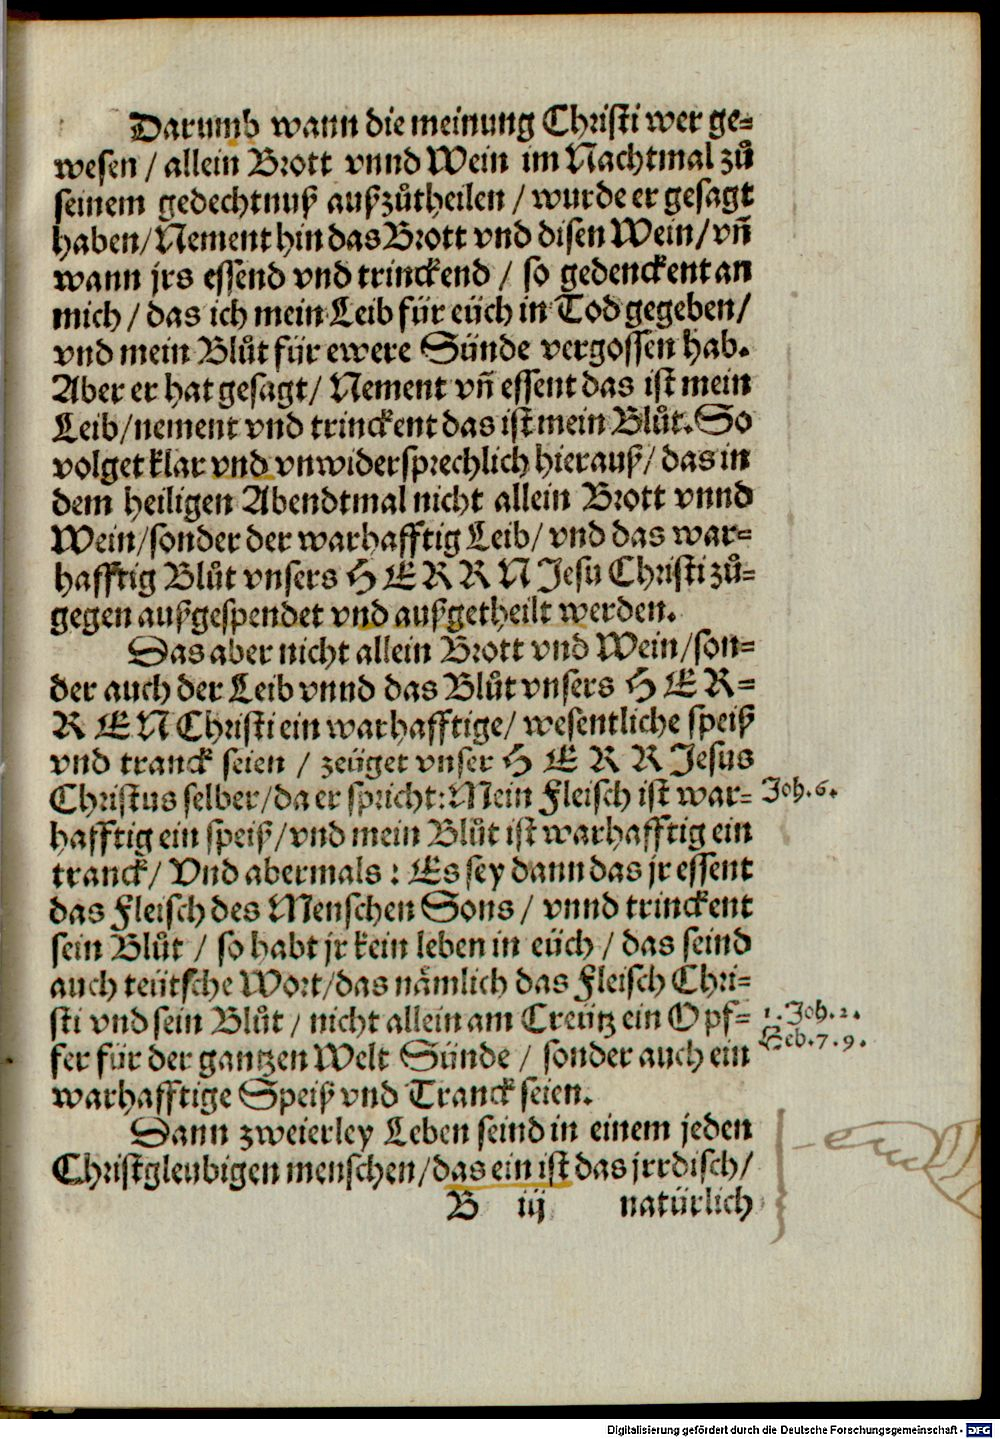 Darumb wann die meinung Christi wer ge-
wesen / allein Brott vnnd Wein im Nachtmal zů
seinem gedechtnuß außzůtheilen / wurde er gesagt
haben / Nement hin das Brott vnd disen Wein / vñ
wann jrs essend vnd trinckend / so gedenckent an
mich / das ich mein Leib für eüch in Tod gegeben /
vnd mein Blůt für ewere Sünde vergossen hab.
Aber er hat gesagt / Nement vñ essent das ist mein
Leib / nement vnd trinckent das ist mein Blůt. So
volget klar vnd vnwidersprechlich hierauß / das in
dem heiligen Abendtmal nicht allein Brott vnnd
Wein / sonder der warhafftig Leib / vnd das war-
hafftig Blůt vnsers HERRN Jesu Christi zů-
gegen außgespendet vnd außgetheilt werden.
Das aber nicht allein Brott vnd Wein / son-
der auch der Leib vnnd das Blůt vnsers HER-
REN Christi ein warhafftige / wesentliche speiß
vnd tranck seien / zeüget vnser HERR Jesus
Christus selber / da er spricht: Mein Fleisch ist war-
Joh. 6.
hafftig ein speiß / vnd mein Blůt ist warhafftig ein
tranck / Vnd abermals: Es sey dann das jr essent
das Fleisch des Menschen Sons / vnnd trinckent
sein Blůt / so habt jr kein leben in eüch / das seind
auch teütsche Wort / das nämlich das Fleisch Chri-
sti vnd sein Blůt / nicht allein am Creütz ein Opf-
1. Joh. 2.
Heb. 7. 9.
fer für der gantzen Welt Sünde / sonder auch ein
warhafftige Speiß vnd Tranck seien.
Dann zweierley Leben seind in einem jeden
Christgleubigen menschen / das ein ist das jrrdisch /
B iij natürlich
Digitalisierung gefördert durch die Deutsche Forschungsgemeinschaft - DFG